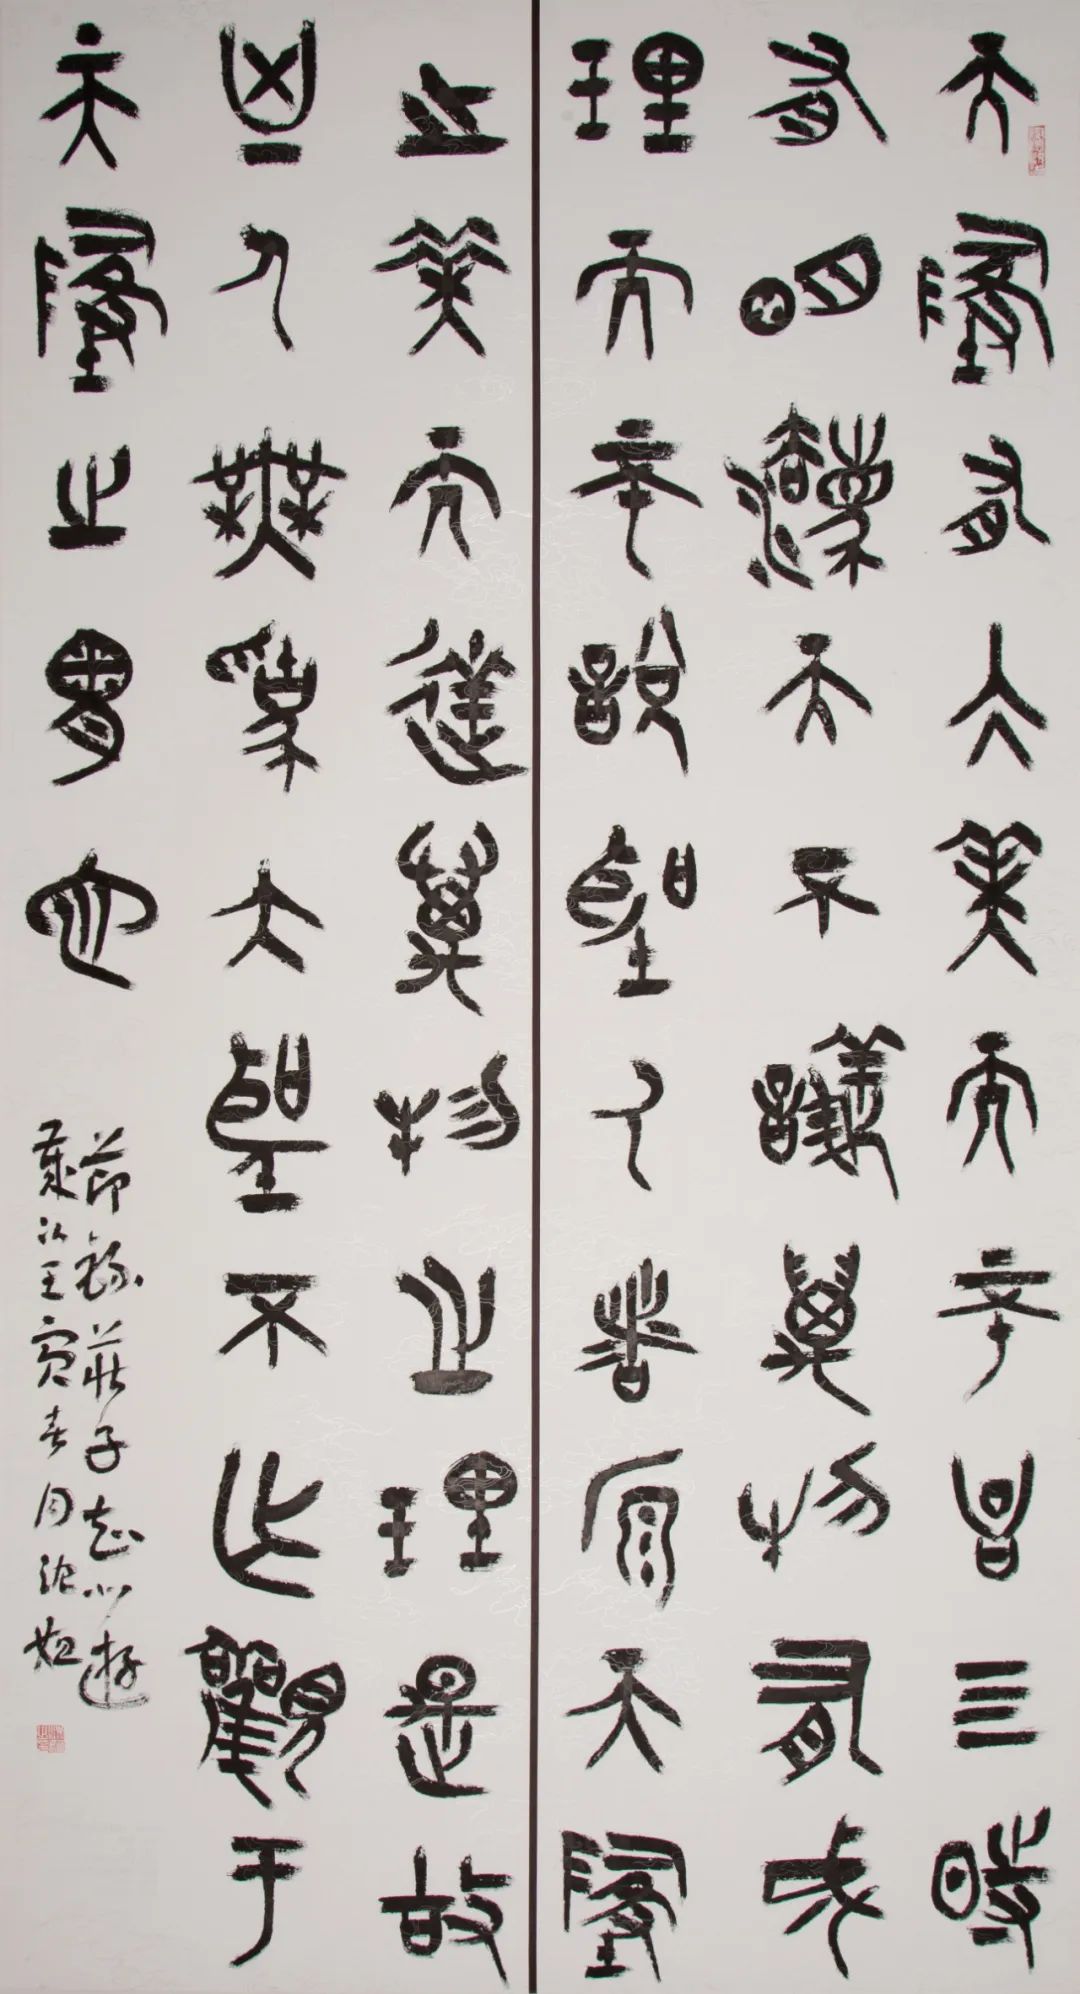 天墬有大美而不言四時
有明灋而不議萬物有成
理而不說聖人者原天墬
之美而達萬物之理是故
至人無為大聖不作觀于
天墬之謂也
節錄莊子知北遊
歲次壬寅春月